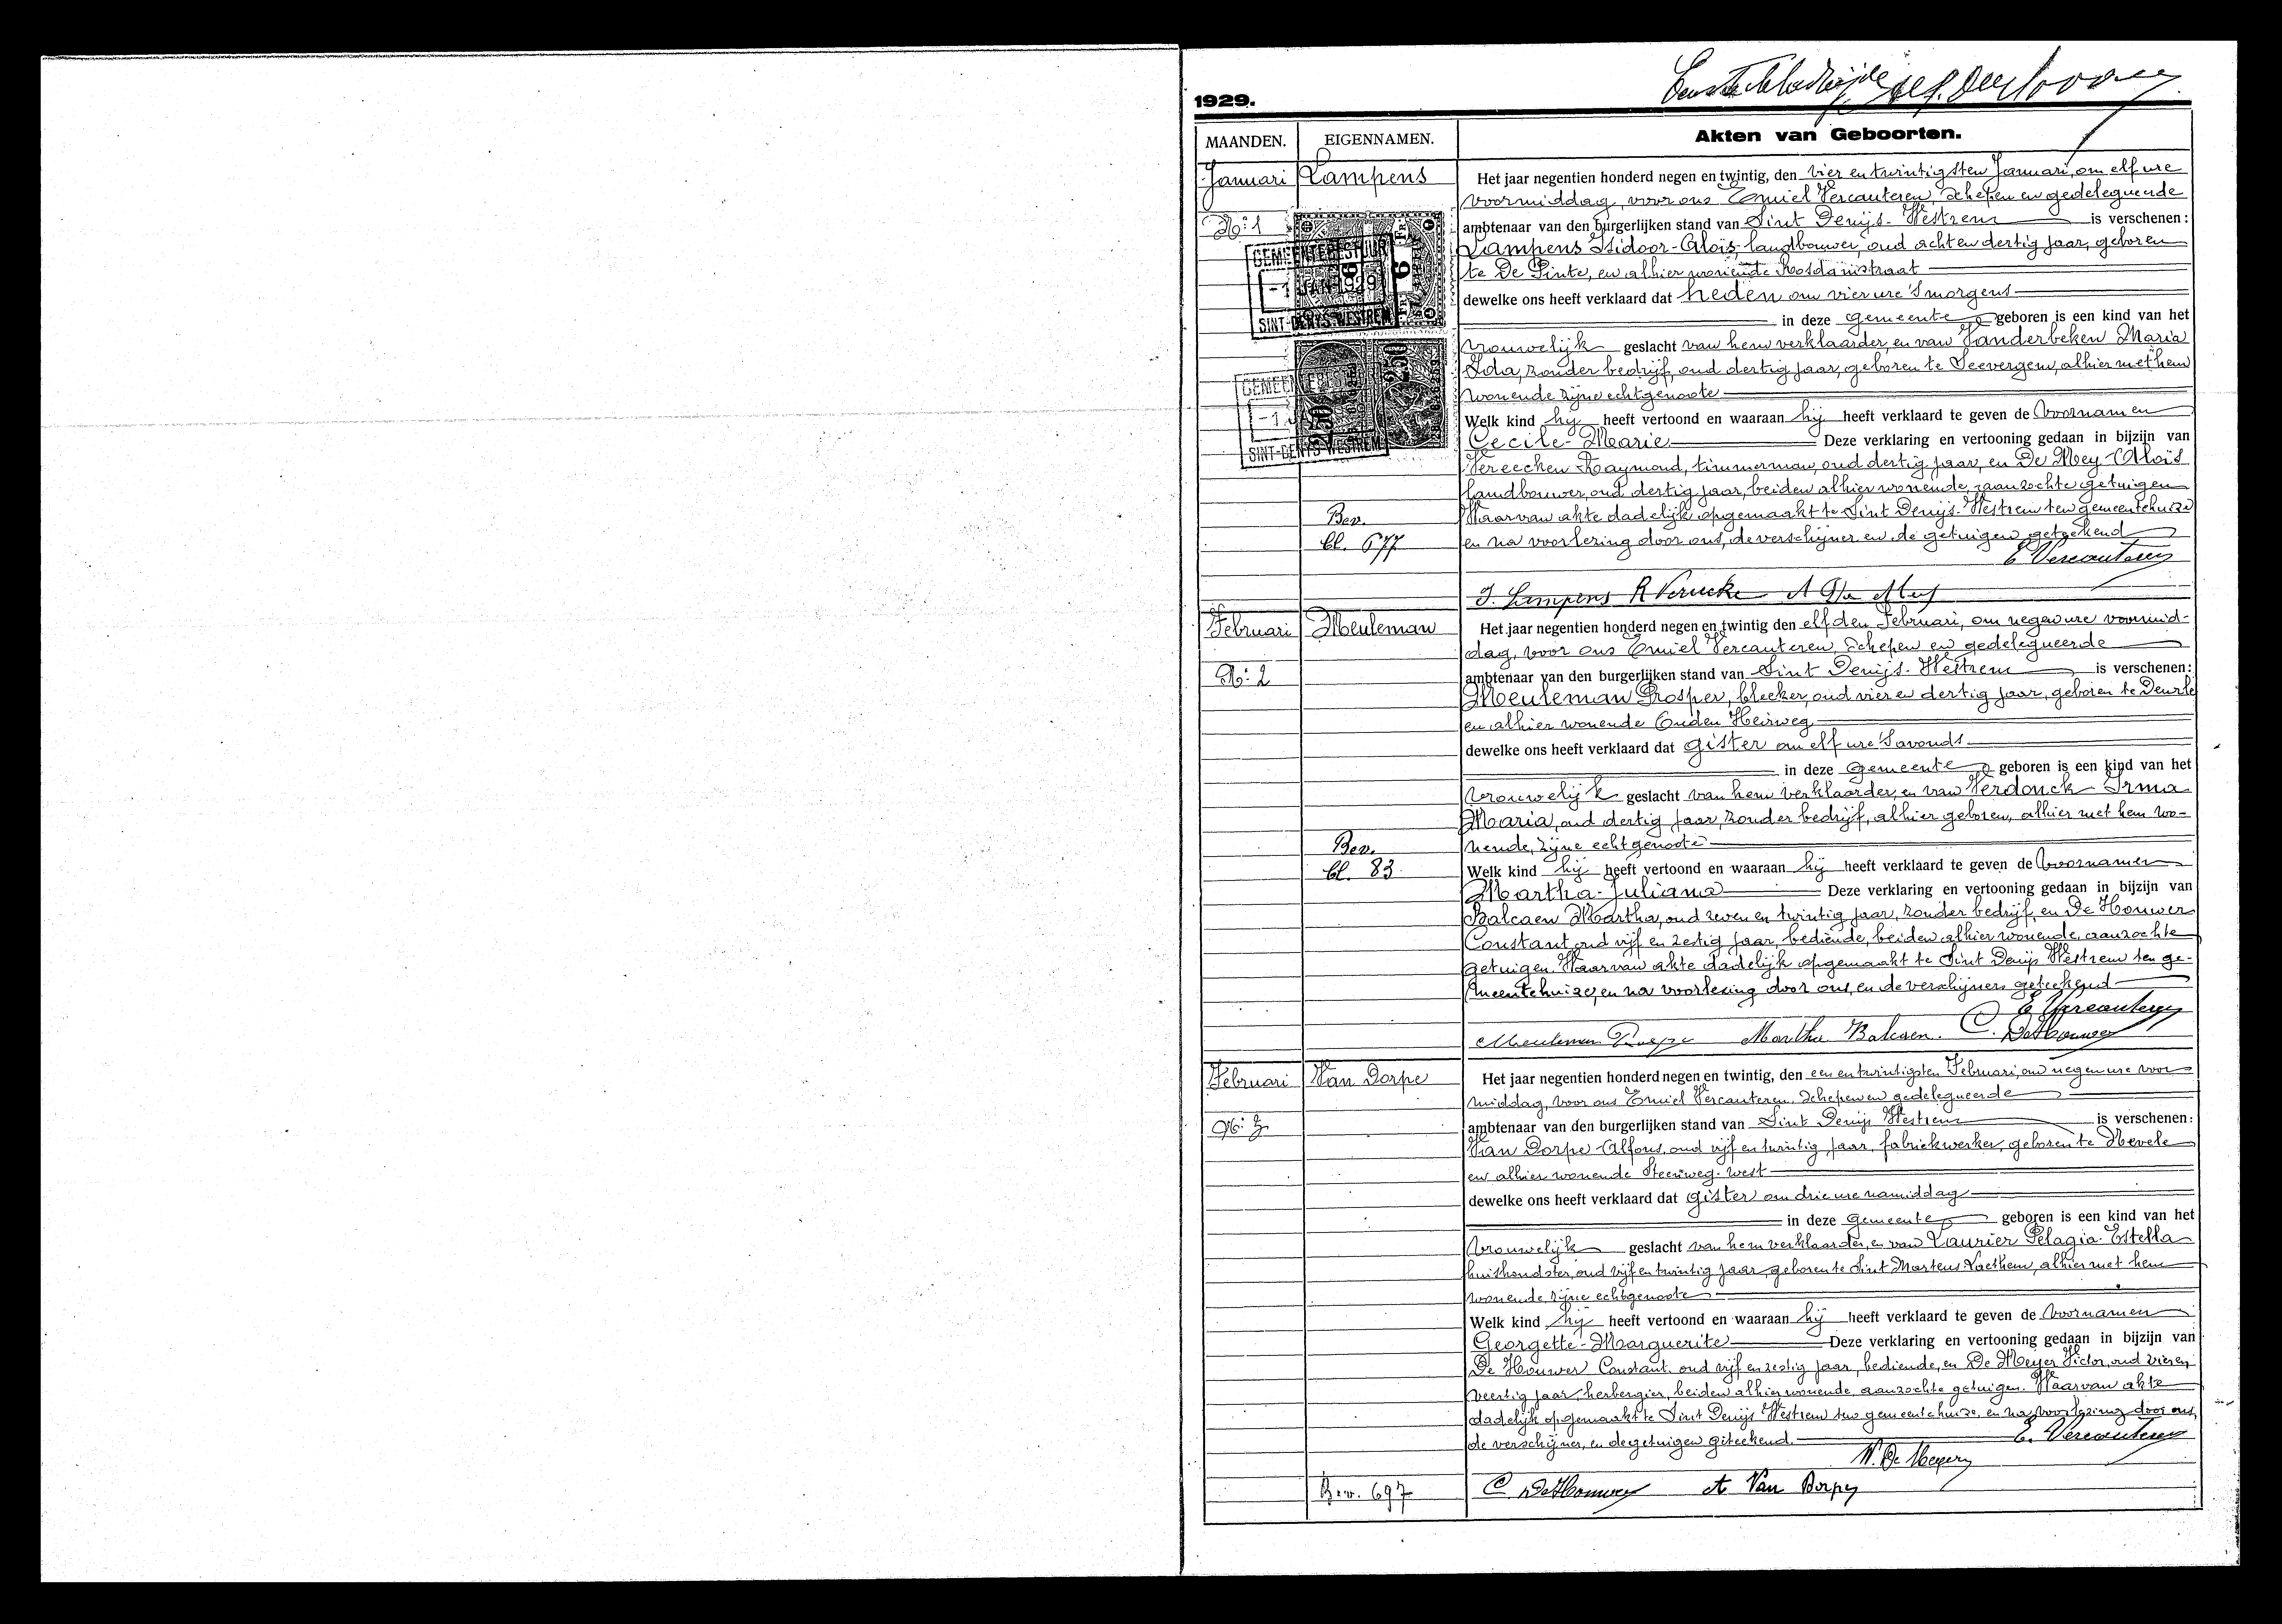 Eerste bladzijde
1929.
MAANDEN. EIGENNAMEN. Akten van Geboorten.
Januari Lampens
N: 1
GEMEENTEBESTUUR
-1 JAN 1929
SINT-DENYS-WESTREM
6
GEMEENTEBESTUUR
-1 JAN
SINT-DENYS-WESTREM
2.50 2.50
Bev.
bl. 677
Het jaar negentien honderd negen en twintig, den vier en twintigsten Januari, om elf ure
voormiddag, voor ons Emiel Vercauteren, Schepen en gedelegueerde
ambtenaar van den burgerlijken stand van Sint Denijs-Westrem is verschenen:
Lampens Isidoor-Aloïs, landbouwer, oud acht en dertig jaar, geboren
te De Pinte, en alhier wonende Rosdamstraat
dewelke ons heeft verklaard dat heden om vier ure 's morgens
in deze gemeente geboren is een kind van het
vrouwelijk geslacht van hem verklaarder, en van Vanderbeken Maria
Ida, zonder bedrijf, oud dertig jaar, geboren te Seevergem, alhier met hem
wonende zijne echtgenoote
Welk kind hij heeft vertoond en waaraan hij heeft verklaard te geven de voornamen
Cecile-Marie Deze verklaring en vertooning gedaan in bijzijn van
Vereecken Raymond, timmerman, oud dertig jaar, en De Mey Aloïs
landbouwer, oud dertig jaar, beiden alhier wonende, aanzochte getuigen
Waarvan akte dadelijk opgemaakt te Sint Denijs-Westrem ten gemeentehuize
en na voorlezing door ons, de verschijner en de getuigen geteekend
E Vercauteren
I. Lampens R Vereecke A De Mey
Februari Meuleman
N: 2
Bev.
bl. 83
Het jaar negentien honderd negen en twintig den elfden Februari, om negen ure voormid-
dag, voor ons Emiel Vercauteren, Schepen en gedelegueerde
ambtenaar van den burgerlijken stand van Sint Denijs-Westrem is verschenen:
Meuleman Prosper, bleeker, oud vier en dertig jaar, geboren te Deurle
en alhier wonende Ouden Heirweg
dewelke ons heeft verklaard dat gister om elf ure 's avonds
in deze gemeente geboren is een kind van het
vrouwelijk geslacht van hem verklaarder, en van Verdonck Irma
Maria, oud dertig jaar, zonder bedrijf, alhier geboren, alhier met hem wo-
nende, zijne echtgenoote
Welk kind hij heeft vertoond en waaraan hij heeft verklaard te geven de voornamen
Martha-Juliana Deze verklaring en vertooning gedaan in bijzijn van
Balcaen Martha, oud zeven en twintig jaar, zonder bedrijf, en De Houwer
Constant, oud vijf en zestig jaar, bediende, beiden alhier wonende, aanzochte
getuigen. Waarvan akte dadelijk opgemaakt te Sint Denijs Westrem ten ge-
meentehuize, en na voorlezing door ons, en de verschijners geteekend
E Vercauteren
Meuleman Prosper Martha Balcaen. C. De Houwer
Februari Van Dorpe
N: 3
Bev. 697
Het jaar negentien honderd negen en twintig, den een en twintigsten Februari, om negen ure voor
middag, voor ons Emiel Vercauteren, Schepen en gedelegueerde
ambtenaar van den burgerlijken stand van Sint Denijs Westrem is verschenen:
Van Dorpe Alfons, oud vijf en twintig jaar, fabriekwerker, geboren te Nevele
en alhier wonende Steenweg-west
dewelke ons heeft verklaard dat gister om drie ure namiddag
in deze gemeente geboren is een kind van het
vrouwelijk geslacht van hem verklaarder, en van Laurier Pelagia-Estella
huishoudster, oud vijf en twintig jaar, geboren te Sint Martens Laethem, alhier met hem
wonende, zijne echtgenoote
Welk kind hij heeft vertoond en waaraan hij heeft verklaard te geven de voornamen
Georgette-Marguerite Deze verklaring en vertooning gedaan in bijzijn van
De Houwer Constant, oud vijf en zestig jaar, bediende, en De Meyer Victor, oud vier en
veertig jaar, herbergier, beiden alhier wonende, aanzochte getuigen. Waarvan akte
dadelijk opgemaakt te Sint Denijs Westrem ten gemeentehuize, en na voorlezing door ons,
de verschijner, en de getuigen geteekend.
E. Vercauteren
V. De Meyer
C De Houwer A Van Dorpe